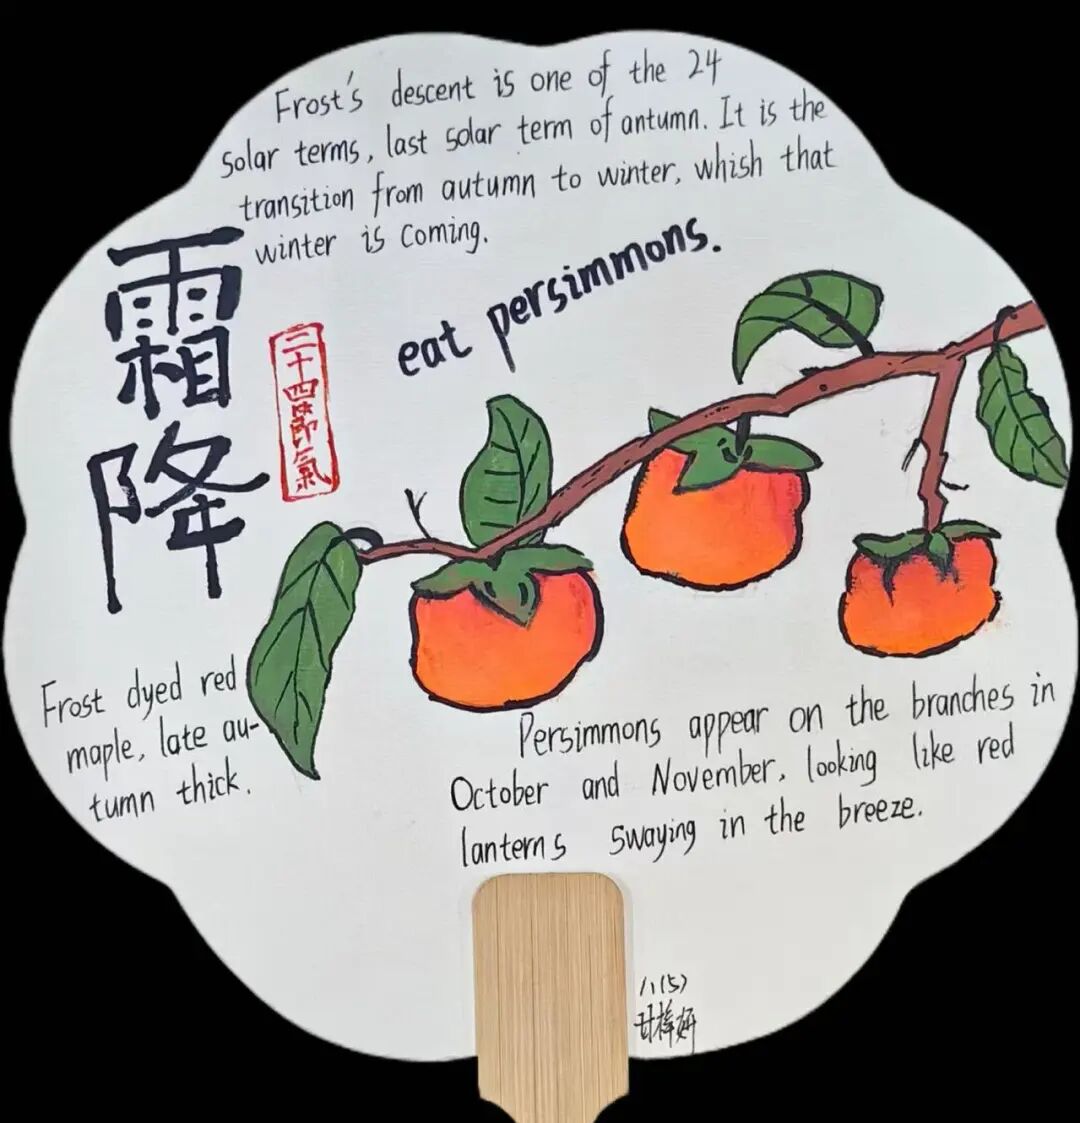 Frost's descent is one of the 24
solar terms, last solar term of antumn. It is the
transition from autumn to winter, whish that
winter is coming.
霜
降
二十四節氣
eat persimmons.
Frost dyed red
maple, late au-
tumn thick.
Persimmons appear on the branches in
October and November, looking like red
lanterns swaying in the breeze.
八(5)
甘梓妍